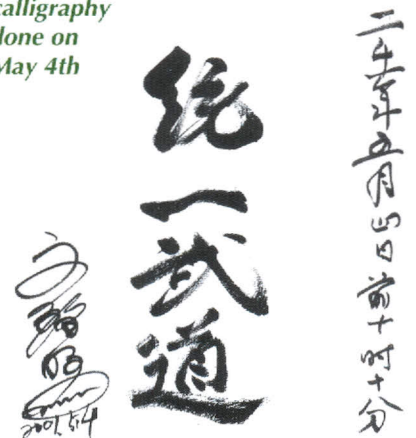 calligraphy
done on
May 4th
二千一年五月四日前十时十分
統一武道
文鮮明
2001.5.4